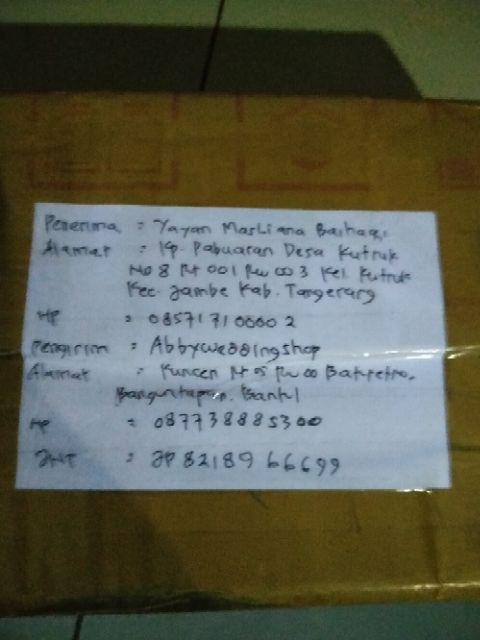 Penerima : Yayan Marliana Baihaqi
Alamat : Kp. Pabuaran Desa Kutruk
No 8 Rt 001 Rw 003 Kel. Kutruk
Kec. Jambe Kab. Tangerang
HP : 085717100002
Pengirim : Abbyweddingshop
Alamat : Kuncen Rt 5 Rw 00 Baturetno,
Banguntapan. Bantul
HP : 087738885300
JNT : JP 82189 66699